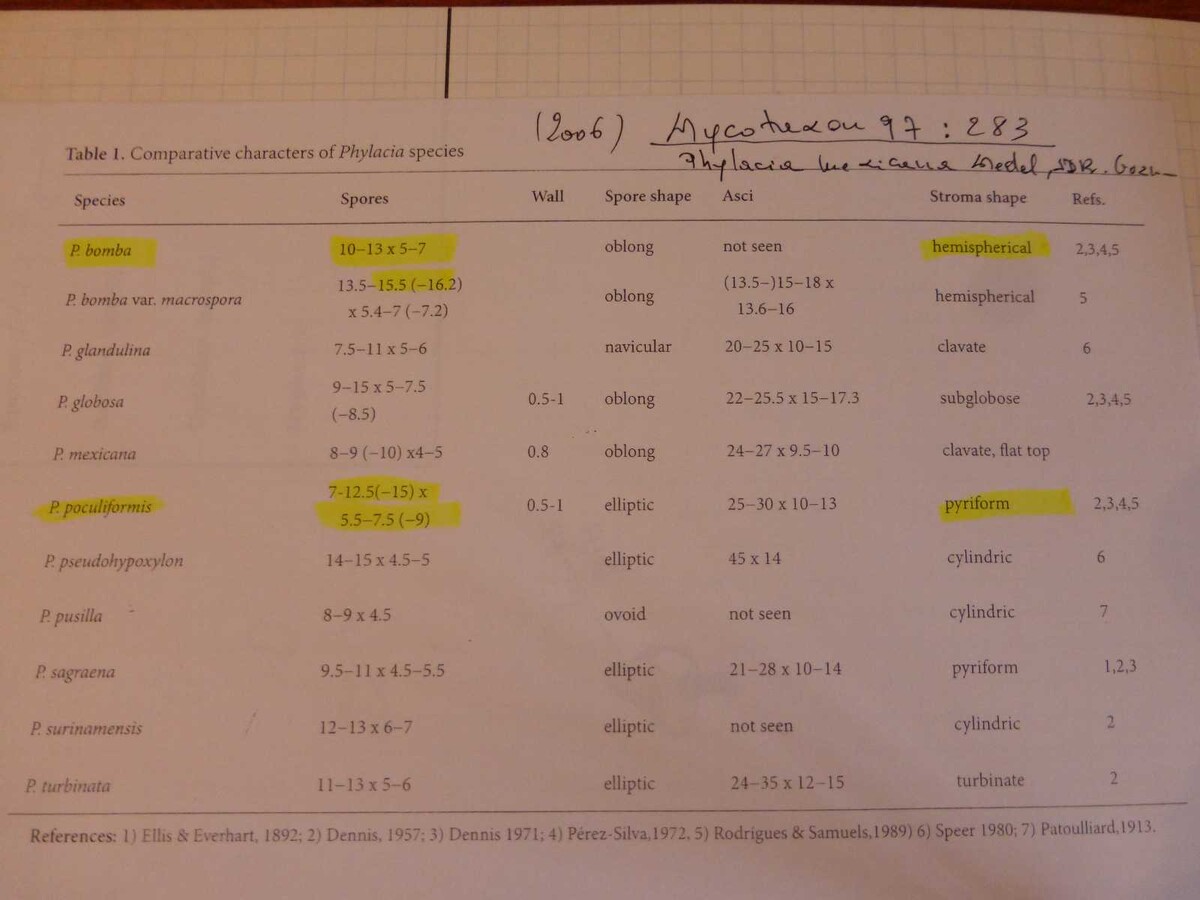 (2006) Mycotaxon 97 : 283
Table 1. Comparative characters of Phylacia species
Phylacia mexicana Medel,
Species Spores Wall Spore shape Asci Stroma shape Refs.
P. bomba 10–13 x 5–7 oblong not seen hemispherical 2,3,4,5
P. bomba var. macrospora 13.5–15.5 (–16.2) x 5.4–7 (–7.2) oblong (13.5-)15–18 x 13.6–16 hemispherical 5
P. glandulina 7.5–11 x 5–6 navicular 20–25 x 10–15 clavate 6
P. globosa 9–15 x 5–7.5 (–8.5) 0.5-1 oblong 22–25.5 x 15–17.3 subglobose 2,3,4,5
P. mexicana 8–9 (–10) x4–5 0.8 oblong 24–27 x 9.5–10 clavate, flat top
P. poculiformis 7-12.5(–15) x 5.5–7.5 (–9) 0.5-1 elliptic 25–30 x 10–13 pyriform 2,3,4,5
P. pseudohypoxylon 14–15 x 4.5–5 elliptic 45 x 14 cylindric 6
P. pusilla 8–9 x 4.5 ovoid not seen cylindric 7
P. sagraena 9.5–11 x 4.5–5.5 elliptic 21–28 x 10–14 pyriform 1,2,3
P. surinamensis 12–13 x 6–7 elliptic not seen cylindric 2
P. turbinata 11–13 x 5–6 elliptic 24–35 x 12–15 turbinate 2
References: 1) Ellis & Everhart, 1892; 2) Dennis, 1957; 3) Dennis 1971; 4) Pérez-Silva,1972, 5) Rodrigues & Samuels,1989) 6) Speer 1980; 7) Patoulliard,1913.